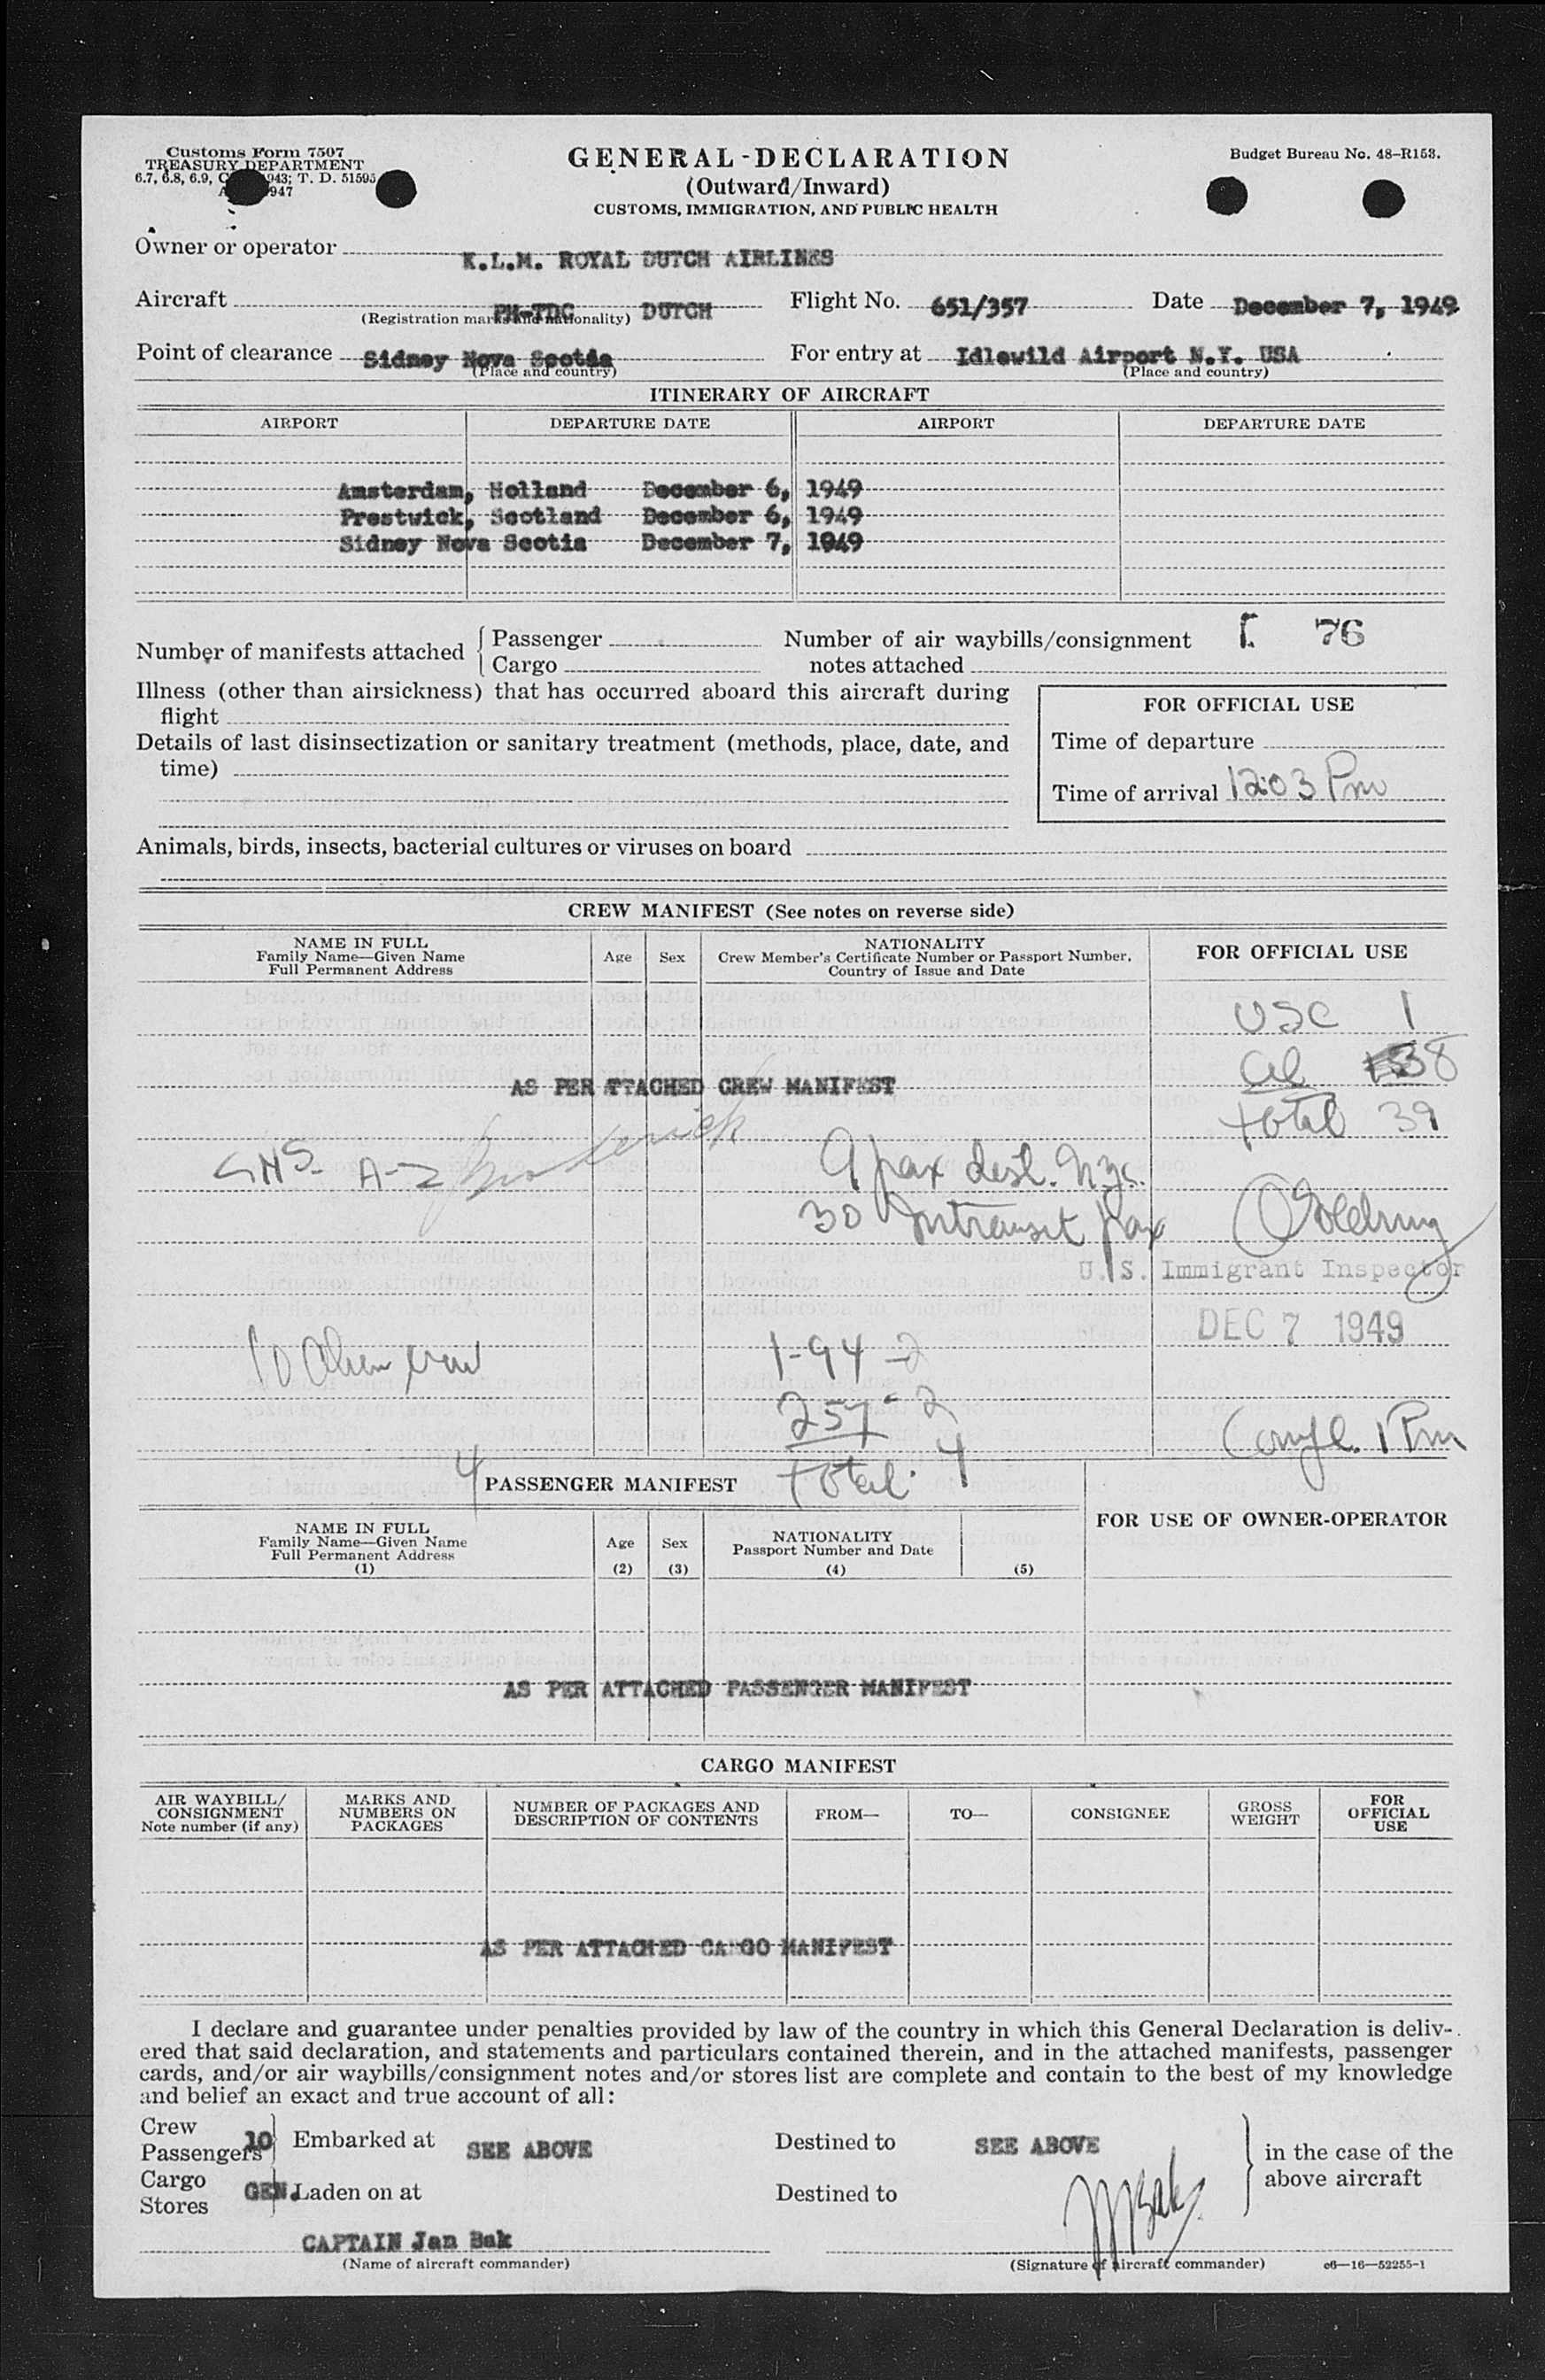 Customs Form 7507
TREASURY DEPARTMENT
6.7, 6.8, 6.9, C 943; T. D. 51595
A 1947
GENERAL-DECLARATION
(Outward/Inward)
CUSTOMS, IMMIGRATION, AND PUBLIC HEALTH
Budget Bureau No. 48-R153.
Owner or operator K.L.M. ROYAL DUTCH AIRLINES
Aircraft PH-TDC DUTCH Flight No. 651/357 Date December 7, 1949
(Registration marks and nationality)
Point of clearance Sidney Nova Scotia For entry at Idlewild Airport N.Y. USA
(Place and country) (Place and country)
ITINERARY OF AIRCRAFT
AIRPORT DEPARTURE DATE AIRPORT DEPARTURE DATE
Amsterdam, Holland December 6, 1949
Prestwick, Scotland December 6, 1949
Sidney Nova Scotia December 7, 1949
Number of manifests attached { Passenger
Cargo
Number of air waybills/consignment
notes attached
76
Illness (other than airsickness) that has occurred aboard this aircraft during
flight
Details of last disinsectization or sanitary treatment (methods, place, date, and
time)
FOR OFFICIAL USE
Time of departure
Time of arrival 1203 Pm
Animals, birds, insects, bacterial cultures or viruses on board
CREW MANIFEST (See notes on reverse side)
NAME IN FULL
Family Name—Given Name
Full Permanent Address
Age
Sex
NATIONALITY
Crew Member's Certificate Number or Passport Number,
Country of Issue and Date
FOR OFFICIAL USE
USC 1
al 38
AS PER ATTACHED CREW MANIFEST
total 39
A-2
9 pax dest. NYC.
30 Intransit pax
U. S. Immigrant Inspector
DEC 7 1949
10 Alien crew
1-94 - 2
257 - 2
total 4
Compl. 1 Pm
4
PASSENGER MANIFEST
NAME IN FULL
Family Name—Given Name
Full Permanent Address
(1)
Age
(2)
Sex
(3)
NATIONALITY
Passport Number and Date
(4)
(5)
FOR USE OF OWNER-OPERATOR
AS PER ATTACHED PASSENGER MANIFEST
CARGO MANIFEST
AIR WAYBILL/
CONSIGNMENT
Note number (if any)
MARKS AND
NUMBERS ON
PACKAGES
NUMBER OF PACKAGES AND
DESCRIPTION OF CONTENTS
FROM—
TO—
CONSIGNEE
GROSS
WEIGHT
FOR
OFFICIAL
USE
AS PER ATTACHED CARGO MANIFEST
I declare and guarantee under penalties provided by law of the country in which this General Declaration is deliv-
ered that said declaration, and statements and particulars contained therein, and in the attached manifests, passenger
cards, and/or air waybills/consignment notes and/or stores list are complete and contain to the best of my knowledge
and belief an exact and true account of all:
Crew 10
Passengers
Embarked at SEE ABOVE Destined to SEE ABOVE
Cargo GEN.
Stores
Laden on at Destined to
in the case of the
above aircraft
CAPTAIN Jan Bak
(Name of aircraft commander)
(Signature of aircraft commander)
c6—16—52255-1